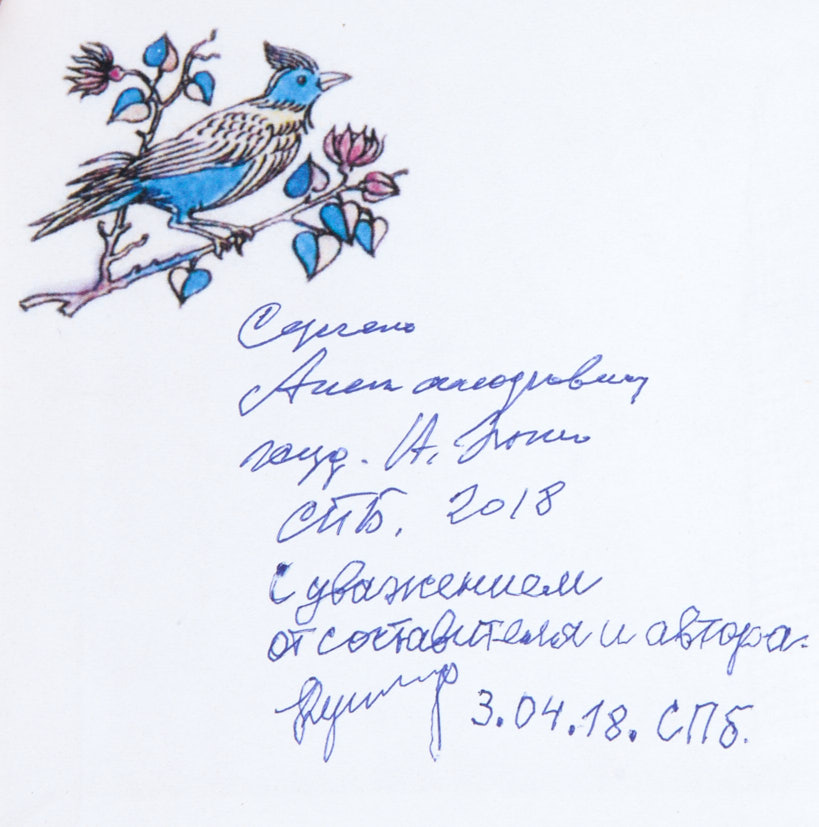 Сергею
Александровичу
худ. И.
СПБ. 2018
С уважением
от составителя и автора.
3.04.18. СПб.